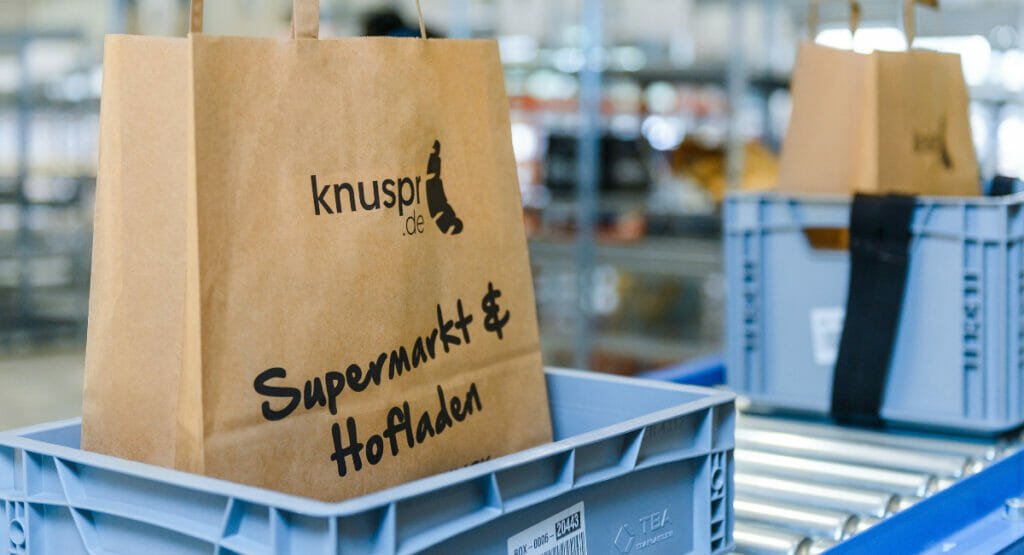 knuspr
.de
Supermarkt &
Hofladen
BOX-0006- 20443
TEA